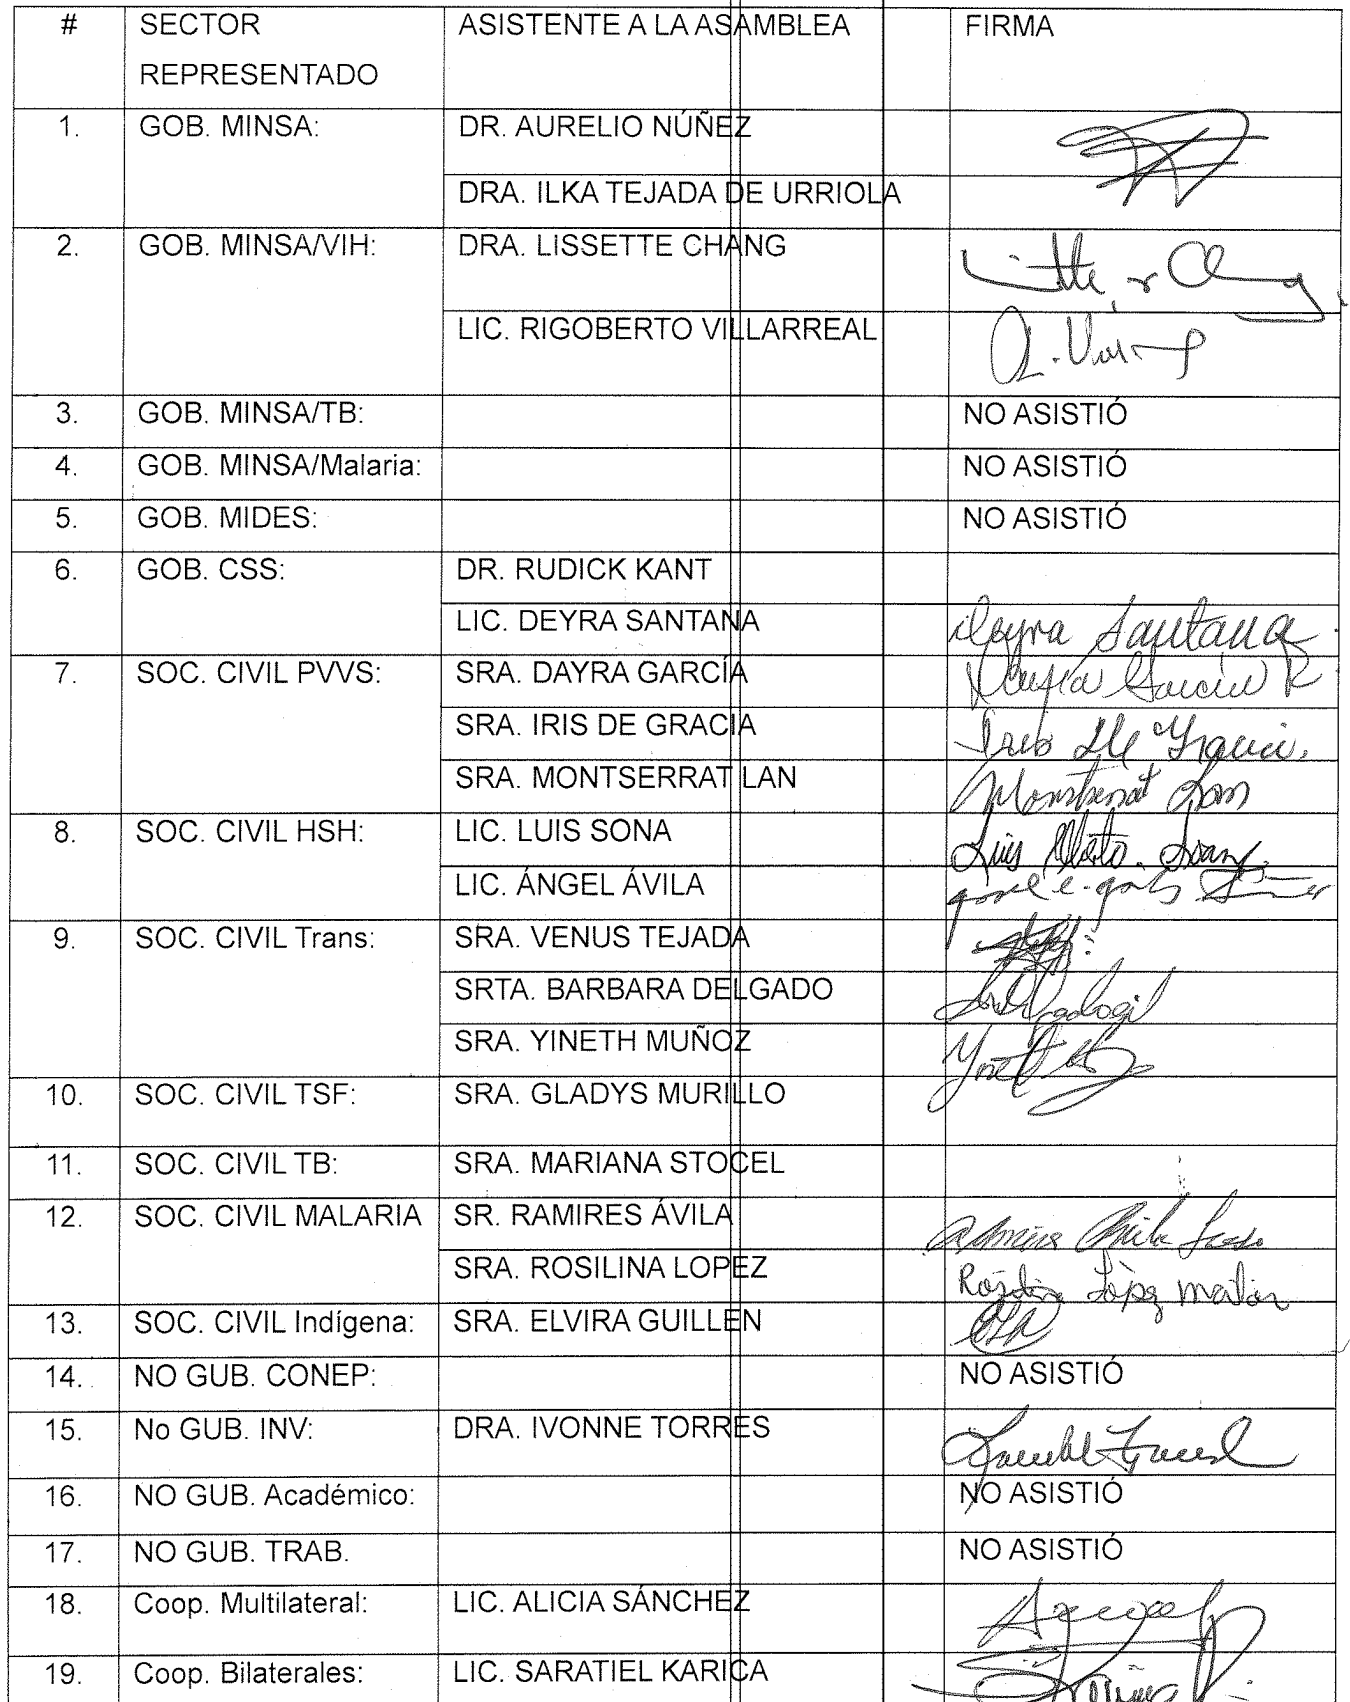 # SECTOR REPRESENTADO ASISTENTE A LA ASAMBLEA FIRMA
1. GOB. MINSA: DR. AURELIO NÚÑEZ
DRA. ILKA TEJADA DE URRIOLA
2. GOB. MINSA/VIH: DRA. LISSETTE CHANG
LIC. RIGOBERTO VILLARREAL
3. GOB. MINSA/TB: NO ASISTIÓ
4. GOB. MINSA/Malaria: NO ASISTIÓ
5. GOB. MIDES: NO ASISTIÓ
6. GOB. CSS: DR. RUDICK KANT
LIC. DEYRA SANTANA Deyra Santana
7. SOC. CIVIL PVVS: SRA. DAYRA GARCÍA Dayra García R
SRA. IRIS DE GRACIA Iris De Gracia
SRA. MONTSERRAT LAN Montserrat Lan
8. SOC. CIVIL HSH: LIC. LUIS SONA Luis Alberto
LIC. ÁNGEL ÁVILA
9. SOC. CIVIL Trans: SRA. VENUS TEJADA
SRTA. BARBARA DELGADO
SRA. YINETH MUÑOZ
10. SOC. CIVIL TSF: SRA. GLADYS MURILLO
11. SOC. CIVIL TB: SRA. MARIANA STOCEL
12. SOC. CIVIL MALARIA SR. RAMIRES ÁVILA
SRA. ROSILINA LOPEZ López
13. SOC. CIVIL Indígena: SRA. ELVIRA GUILLEN
14. NO GUB. CONEP: NO ASISTIÓ
15. No GUB. INV: DRA. IVONNE TORRES
16. NO GUB. Académico: NO ASISTIÓ
17. NO GUB. TRAB. NO ASISTIÓ
18. Coop. Multilateral: LIC. ALICIA SÁNCHEZ
19. Coop. Bilaterales: LIC. SARATIEL KARICA